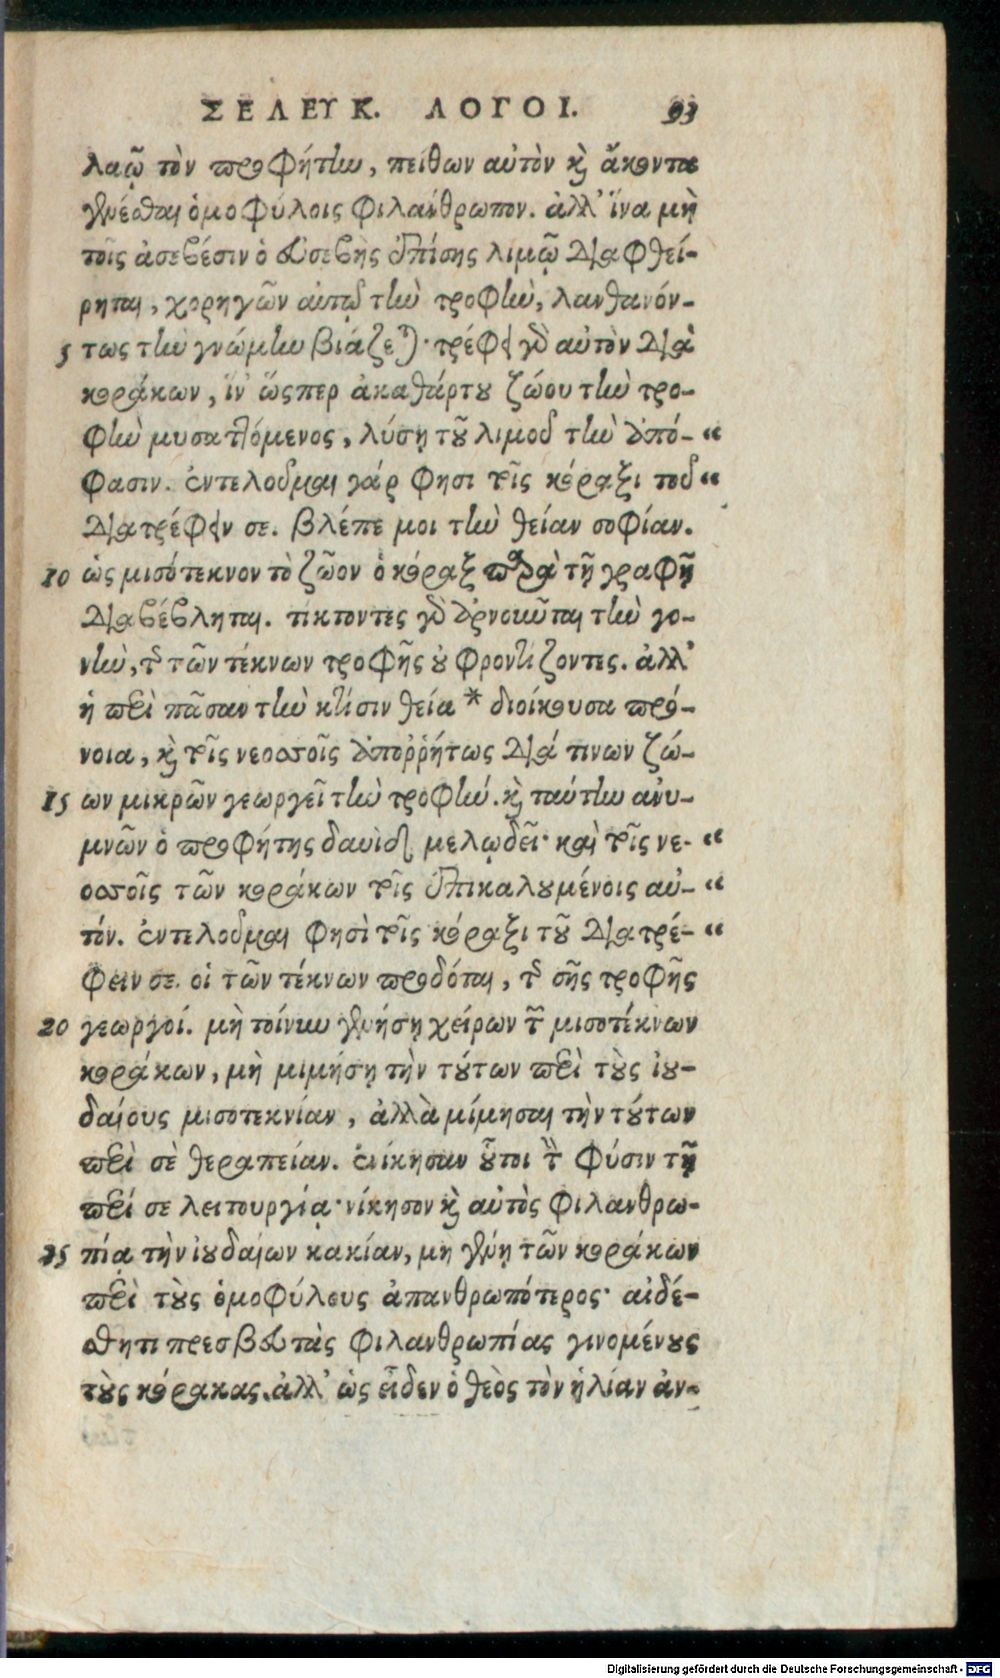 ΣΕΛΕΥΚ. ΛΟΓΟΙ. 93
λαῷ τὸν προφήτην, πείθων αὐτὸν καὶ ἄκοντα
γενέσθαι ὁμοφύλοις φιλάνθρωπον. ἀλλ' ἵνα μὴ
τοῖς ἀσεβέσιν ὁ εὐσεβὴς ἐπίσης λιμῷ διαφθεί-
ρηται, χορηγῶν αὐτῷ τὴν τροφὴν, λανθανόν-
5 τως τὴν γνώμην βιάζεται· τρέφει γὰρ αὐτὸν διὰ
κοράκων, ἵν' ὥσπερ ἀκαθάρτου ζώου τὴν τρο-
φὴν μυσαττόμενος, λύσῃ τοῦ λιμοῦ τὴν ἀπό- “
φασιν. ἐντελοῦμαι γάρ φησι τοῖς κόραξι τοῦ “
διατρέφειν σε. βλέπε μοι τὴν θείαν σοφίαν.
10 ὡς μισότεκνον τὸ ζῶον ὁ κόραξ παρὰ τῇ γραφῇ
διαβέβληται. τίκτοντες γὰρ ἀρνοῦνται τὴν γο-
νὴν, τῆς τῶν τέκνων τροφῆς οὐ φροντίζοντες. ἀλλ'
ἡ περὶ πᾶσαν τὴν κτίσιν θεία * διοίκουσα πρό-
νοια, καὶ τοῖς νεοσσοῖς ἀπορῤῥήτως διά τινων ζώ-
15 ων μικρῶν γεωργεῖ τὴν τροφήν. καὶ ταύτην ἀνυ-
μνῶν ὁ προφήτης δαυὶδ μελῳδεῖ· καὶ τοῖς νε- “
οσσοῖς τῶν κοράκων τοῖς ἐπικαλουμένοις αὐ- “
τόν. ἐντελοῦμαι φησὶ τοῖς κόραξι τοῦ διατρέ- “
φειν σε. οἱ τῶν τέκνων προδόται, τῆς σῆς τροφῆς
20 γεωργοί. μὴ τοίνυν γενήσῃ χείρων τῶν μισοτέκνων
κοράκων, μὴ μιμήσῃ τὴν τούτων περὶ τοὺς ἰου-
δαίους μισοτεκνίαν, ἀλλὰ μίμησαι τὴν τούτων
περὶ σὲ θεραπείαν. ἐνίκησαν οὗτοι τὴν φύσιν τῇ
περί σε λειτουργίᾳ· νίκησον καὶ αὐτὸς φιλανθρω-
25 πίᾳ τὴν ἰουδαίων κακίαν, μη γένῃ τῶν κοράκων
περὶ τοὺς ὁμοφύλους ἀπανθρωπότερος· αἰδέ-
σθητι πρεσβευτὰς φιλανθρωπίας γινομένους
τοὺς κόρακας. ἀλλ' ὡς εἶδεν ὁ θεὸς τὸν ἡλίαν ἀν-
Digitalisierung gefördert durch die Deutsche Forschungsgemeinschaft - DFG